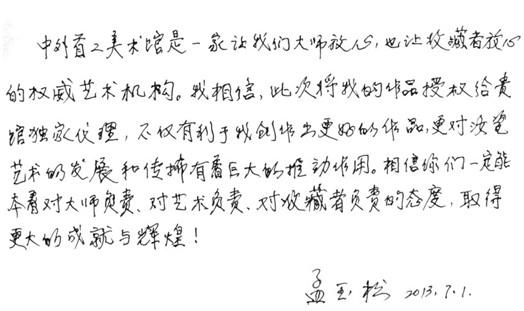 中外首工美术馆是一家让我们大师放心,也让收藏者放心
的权威艺术机构。我相信,此次将我的作品授权给贵
馆独家代理,不仅有利于我创作出更好的作品,更对汝瓷
艺术的发展和传播有着巨大的推动作用。相信你们一定能
本着对大师负责、对艺术负责、对收藏者负责的态度,取得
更大的成就与辉煌!
孟玉松 2013.7.1.